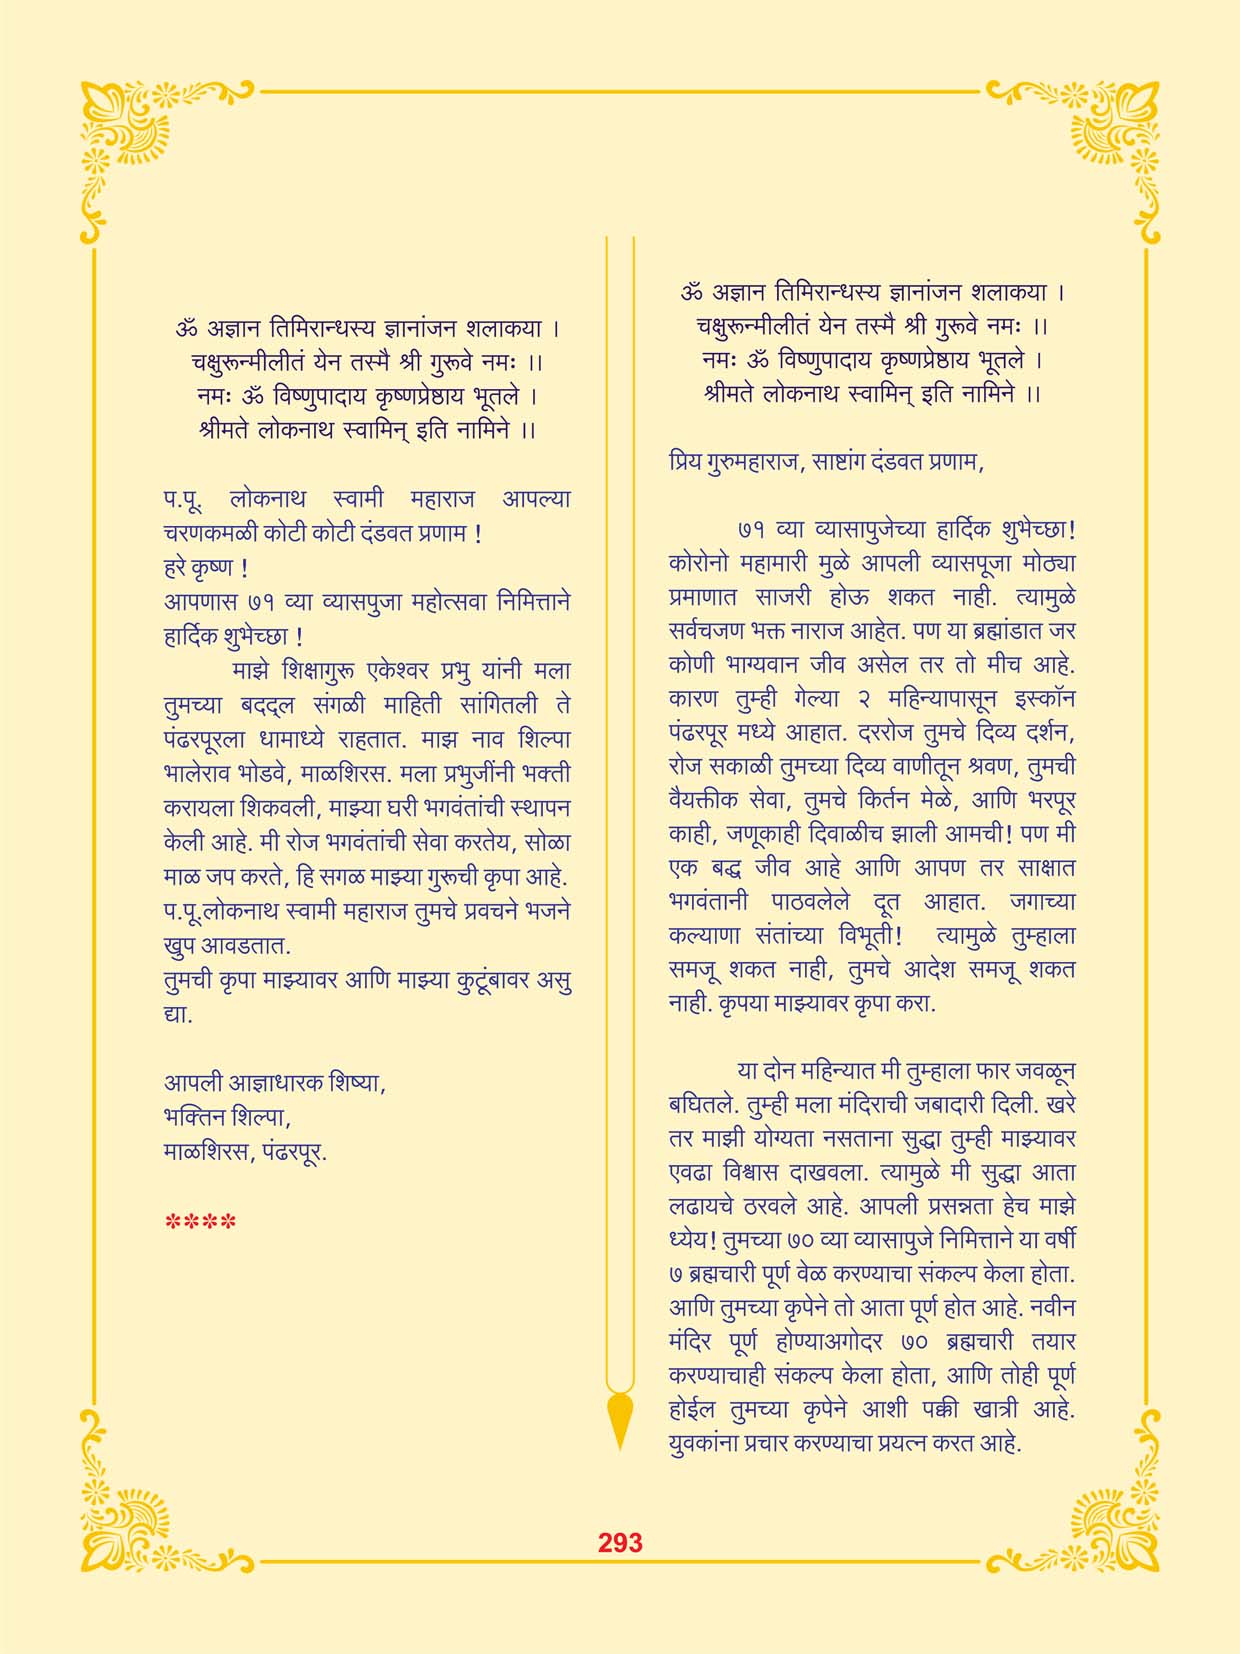 ॐ अज्ञान तिमिरान्धस्य ज्ञानांजन शलाकया ।
चक्षुरून्मीलीतं येन तस्मै श्री गुरूवे नमः ।।
नमः ॐ विष्णुपादाय कृष्णप्रेष्ठाय भूतले ।
श्रीमते लोकनाथ स्वामिन् इति नामिने ।।
प.पू. लोकनाथ स्वामी महाराज आपल्या
चरणकमळी कोटी कोटी दंडवत प्रणाम !
हरे कृष्ण !
आपणास ७१ व्या व्यासपुजा महोत्सवा निमित्ताने
हार्दिक शुभेच्छा !
माझे शिक्षागुरू एकेश्वर प्रभु यांनी मला
तुमच्या बदद्ल संगळी माहिती सांगितली ते
पंढरपूरला धामाध्ये राहतात. माझ नाव शिल्पा
भालेराव भोडवे, माळशिरस. मला प्रभुजींनी भक्ती
करायला शिकवली, माझ्या घरी भगवंतांची स्थापन
केली आहे. मी रोज भगवंतांची सेवा करतेय, सोळा
माळ जप करते, हि सगळ माझ्या गुरूची कृपा आहे.
प.पू.लोकनाथ स्वामी महाराज तुमचे प्रवचने भजने
खुप आवडतात.
तुमची कृपा माझ्यावर आणि माझ्या कुटूंबावर असु
द्या.
आपली आज्ञाधारक शिष्या,
भक्तिन शिल्पा,
माळशिरस, पंढरपूर.
****
ॐ अज्ञान तिमिरान्धस्य ज्ञानांजन शलाकया ।
चक्षुरून्मीलीतं येन तस्मै श्री गुरूवे नमः ।।
नमः ॐ विष्णुपादाय कृष्णप्रेष्ठाय भूतले ।
श्रीमते लोकनाथ स्वामिन् इति नामिने ।।
प्रिय गुरुमहाराज, साष्टांग दंडवत प्रणाम,
७१ व्या व्यासापुजेच्या हार्दिक शुभेच्छा!
कोरोनो महामारी मुळे आपली व्यासपूजा मोठ्या
प्रमाणात साजरी होऊ शकत नाही. त्यामुळे
सर्वचजण भक्त नाराज आहेत. पण या ब्रह्मांडात जर
कोणी भाग्यवान जीव असेल तर तो मीच आहे.
कारण तुम्ही गेल्या २ महिन्यापासून इस्कॉन
पंढरपूर मध्ये आहात. दररोज तुमचे दिव्य दर्शन,
रोज सकाळी तुमच्या दिव्य वाणीतून श्रवण, तुमची
वैयक्तीक सेवा, तुमचे किर्तन मेळे, आणि भरपूर
काही, जणूकाही दिवाळीच झाली आमची! पण मी
एक बद्ध जीव आहे आणि आपण तर साक्षात
भगवंतानी पाठवलेले दूत आहात. जगाच्या
कल्याणा संतांच्या विभूती! त्यामुळे तुम्हाला
समजू शकत नाही, तुमचे आदेश समजू शकत
नाही. कृपया माझ्यावर कृपा करा.
या दोन महिन्यात मी तुम्हाला फार जवळून
बघितले. तुम्ही मला मंदिराची जबादारी दिली. खरे
तर माझी योग्यता नसताना सुद्धा तुम्ही माझ्यावर
एवढा विश्वास दाखवला. त्यामुळे मी सुद्धा आता
लढायचे ठरवले आहे. आपली प्रसन्नता हेच माझे
ध्येय! तुमच्या ७० व्या व्यासापुजे निमित्ताने या वर्षी
७ ब्रह्मचारी पूर्ण वेळ करण्याचा संकल्प केला होता.
आणि तुमच्या कृपेने तो आता पूर्ण होत आहे. नवीन
मंदिर पूर्ण होण्याअगोदर ७० ब्रह्मचारी तयार
करण्याचाही संकल्प केला होता, आणि तोही पूर्ण
होईल तुमच्या कृपेने आशी पक्की खात्री आहे.
युवकांना प्रचार करण्याचा प्रयत्न करत आहे.
293